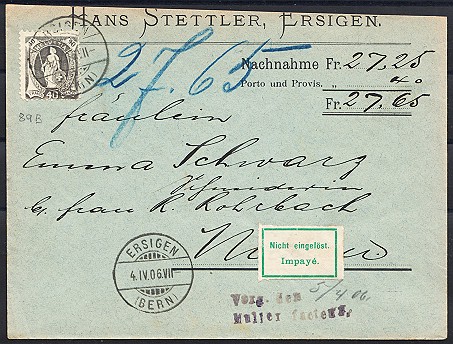 HANS STETTLER, ERSIGEN.
27.65
Nachnahme Fr. 27.25
Porto und Provis. „ 40
Fr. 27.65
40
89B
Fräulein
Emma Schwarz
Schneiderin
b/ Frau R. Rohrbach
Nicht eingelöst.
Impayé.
ERSIGEN
4.IV.06.VII
(BERN)
Vorg. den 5/4 06.
Muller facteur.